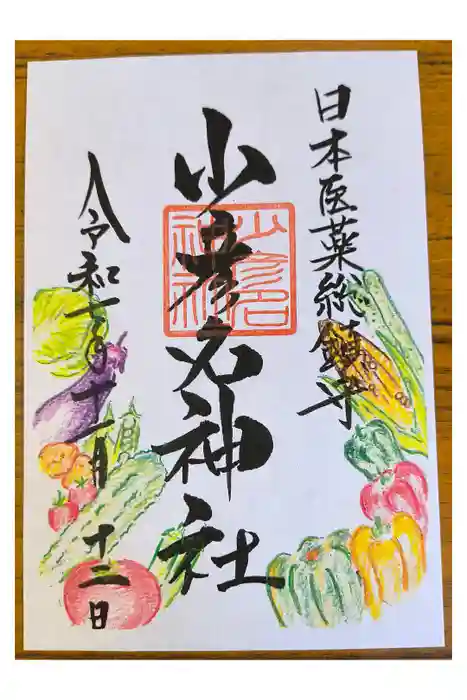 日本医薬総鎮守
少彦名神社
令和七年十一月十二日
少彦名
神社